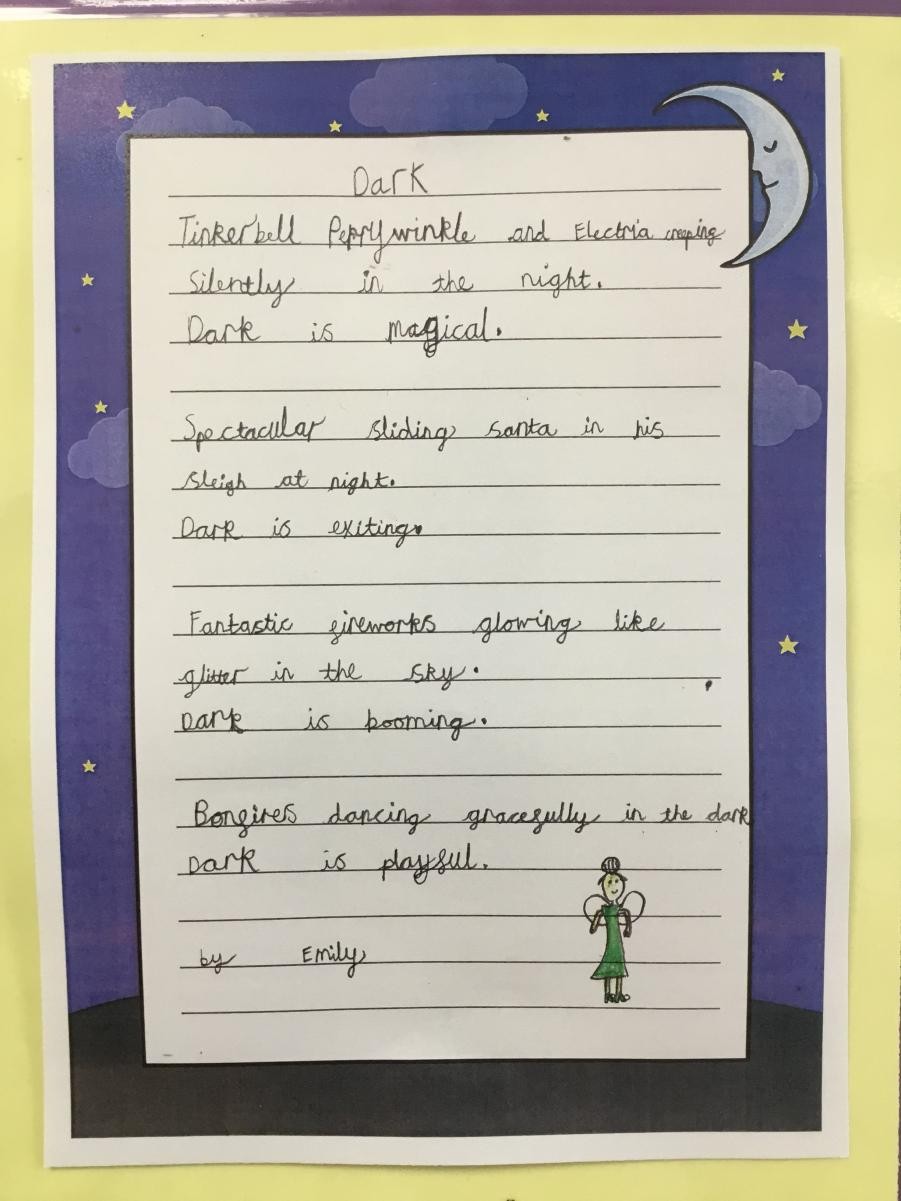 Dark
Tinkerbell Peprywinkle and Electria creeping
Silently in the night.
Dark is magical.
Spectacular sliding santa in his
sleigh at night.
Dark is exiting.
Fantastic fireworks glowing like
glitter in the sky.
Dark is booming.
Bonfires dancing gracefully in the dark
Dark is playful.
by Emily